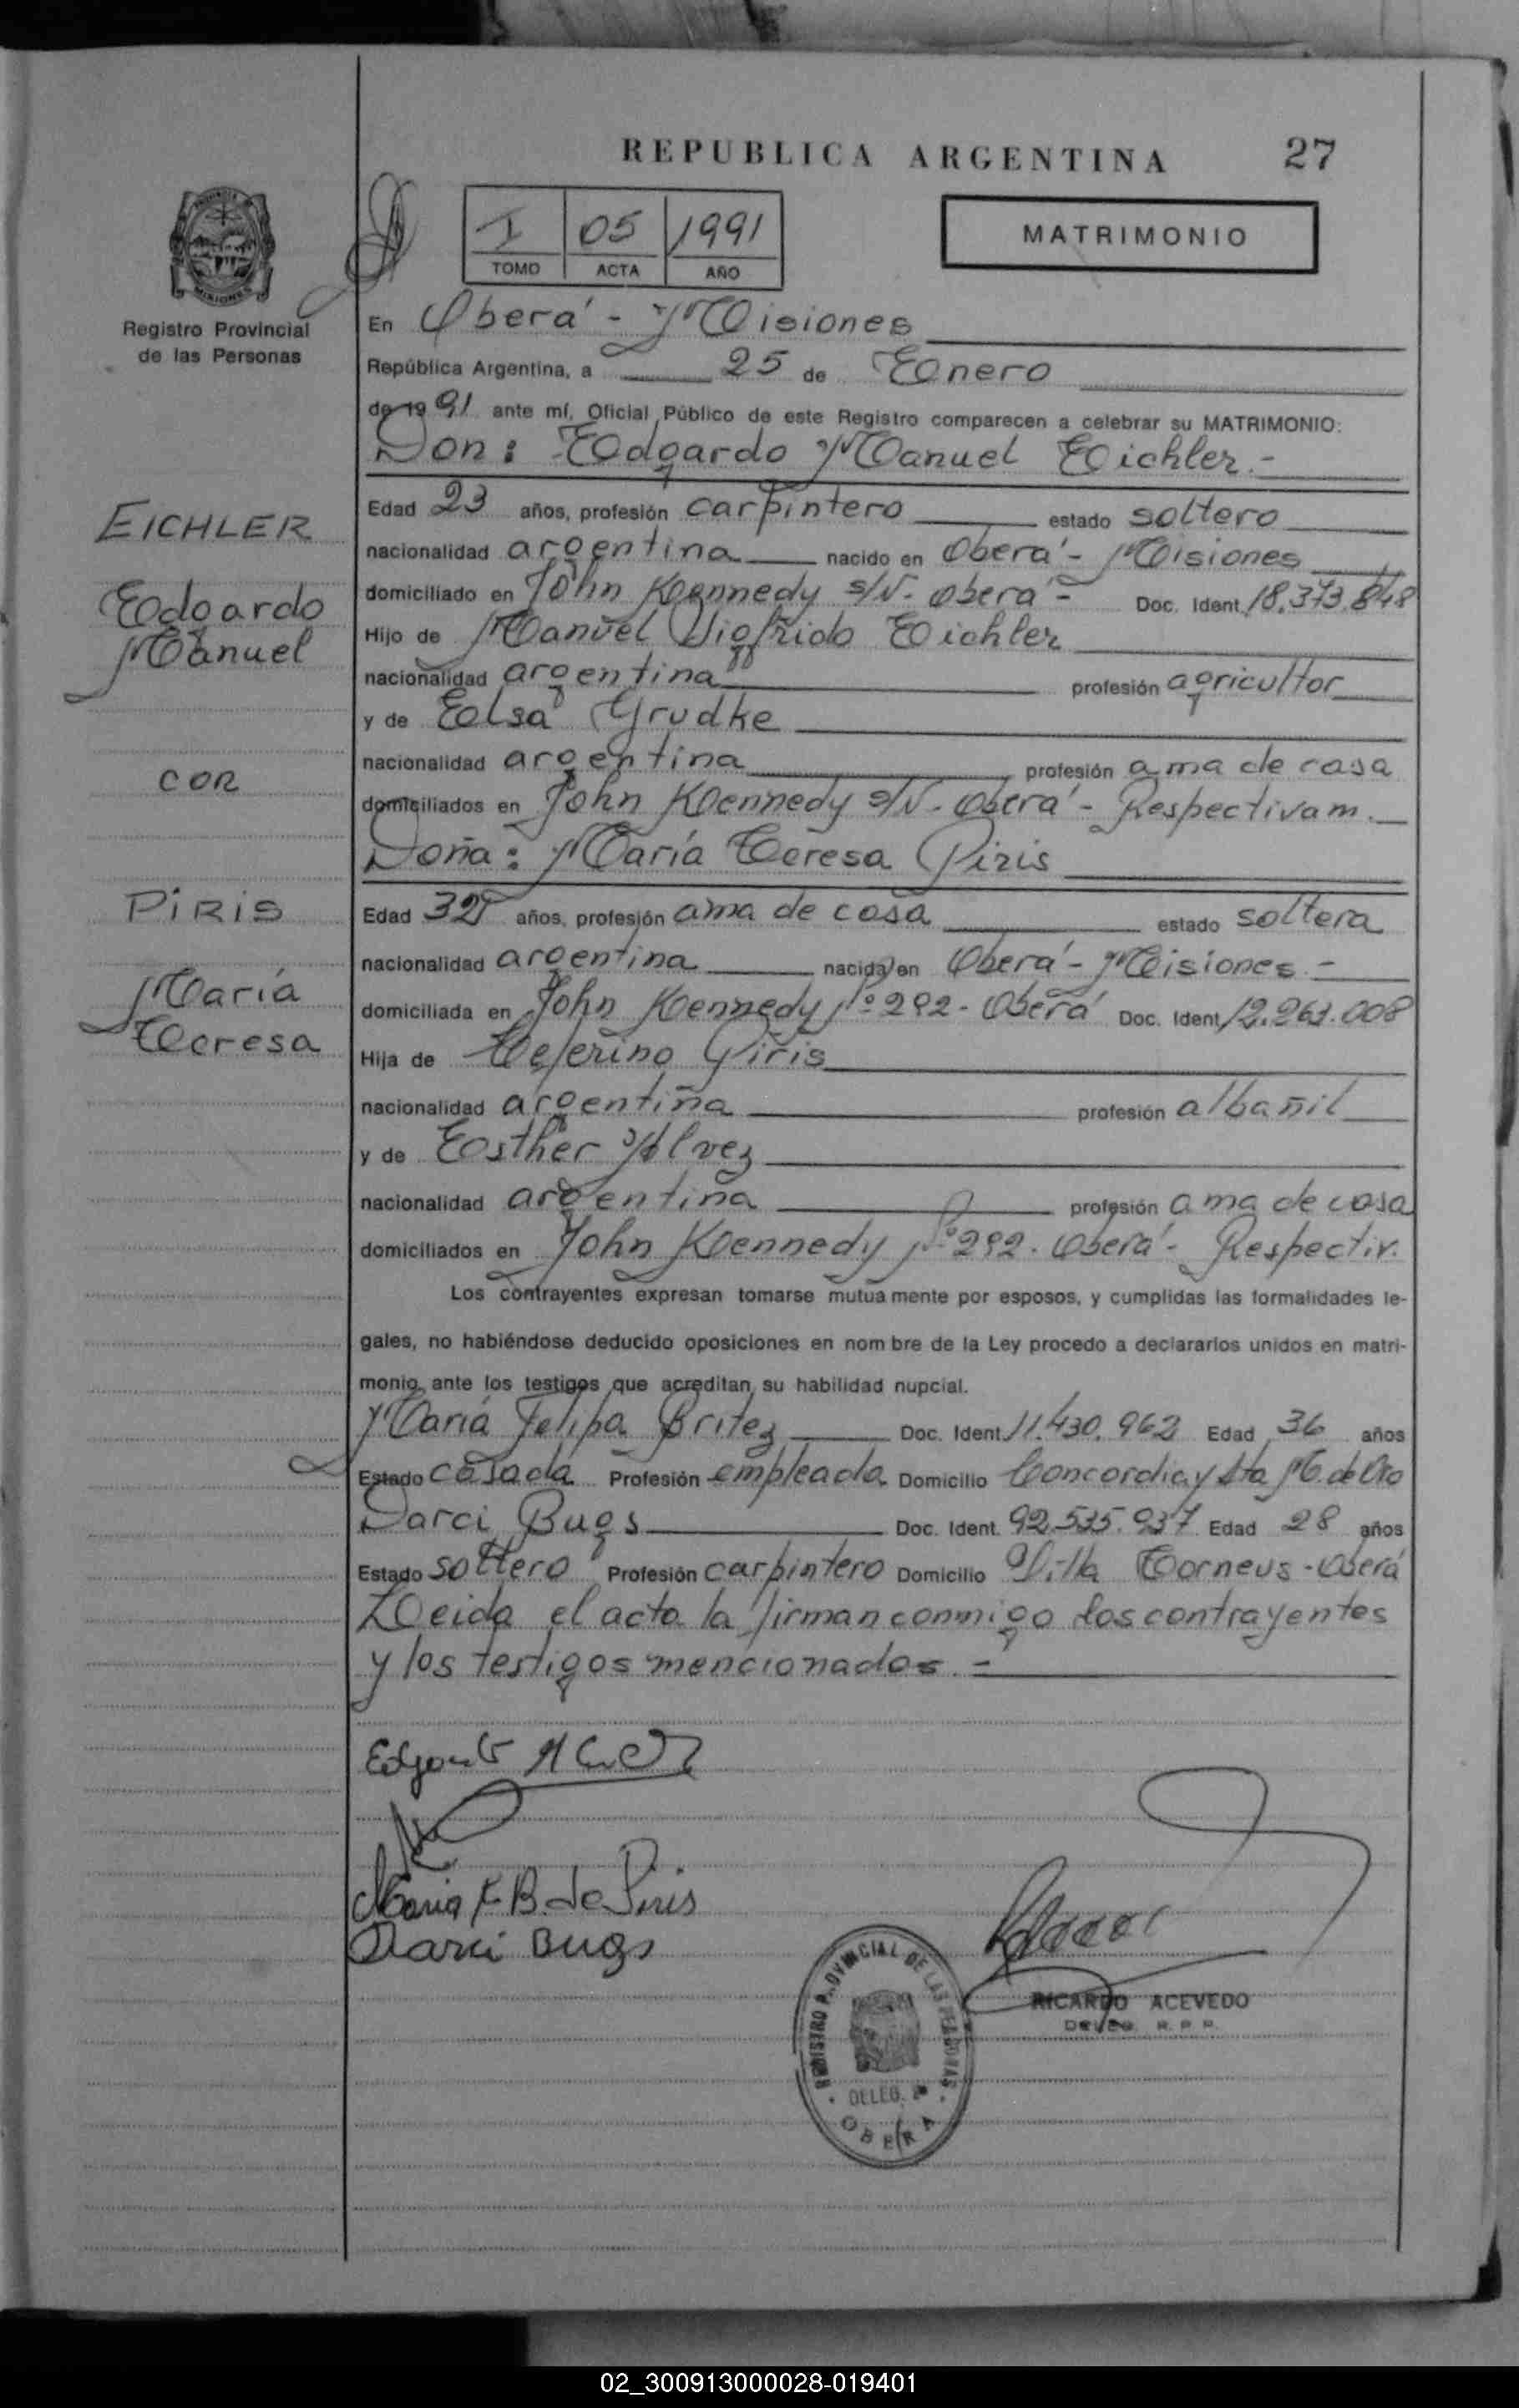 REPUBLICA ARGENTINA 27
I 05 1991
TOMO ACTA AÑO
MATRIMONIO
PROVINCIA DE MISIONES
Registro Provincial
de las Personas
En Oberá - Misiones
República Argentina, a 25 de Enero
de 1991 ante mí, Oficial Público de este Registro comparecen a celebrar su MATRIMONIO:
Don: Edgardo Manuel Eichler.-
EICHLER
Edgardo
Manuel
Edad 23 años, profesión carpintero estado soltero
nacionalidad argentina nacido en Oberá - Misiones
domiciliado en John Kennedy s/N - Oberá - Doc. Ident. 18.373.848
Hijo de Manuel Sigfrido Eichler
nacionalidad argentina profesión agricultor
y de Elsa Grudke
nacionalidad argentina profesión ama de casa
cor
domiciliados en John Kennedy s/N - Oberá - Respectivam.
Doña: María Teresa Piris
PIRIS
María
Teresa
Edad 32 años, profesión ama de casa estado soltera
nacionalidad argentina nacida en Oberá - Misiones.-
domiciliada en John Kennedy Nº 292 - Oberá Doc. Ident. 12.261.008
Hija de Ceferino Piris
nacionalidad argentina profesión albañil
y de Esther Alvez
nacionalidad argentina profesión ama de casa
domiciliados en John Kennedy Nº 292 - Oberá - Respectiv.
Los contrayentes expresan tomarse mutuamente por esposos, y cumplidas las formalidades le-
gales, no habiéndose deducido oposiciones en nombre de la Ley procedo a declararlos unidos en matri-
monio ante los testigos que acreditan su habilidad nupcial.
María Felipa Britez Doc. Ident. 11.430.962 Edad 36 años
Estado casada Profesión empleada Domicilio Concordia y Sta M. de Oro
Darci Bugs Doc. Ident. 92.535.937 Edad 28 años
Estado soltero Profesión carpintero Domicilio Villa Torneus - Oberá
Leida el acta la firman conmigo los contrayentes
y los testigos mencionados.-
María F B. de Piris
Darci Bugs
REGISTRO PROVINCIAL DE LAS PERSONAS
DELEG.
OBERA
RICARDO ACEVEDO
DELEG. R. P. P.
02_300913000028-019401